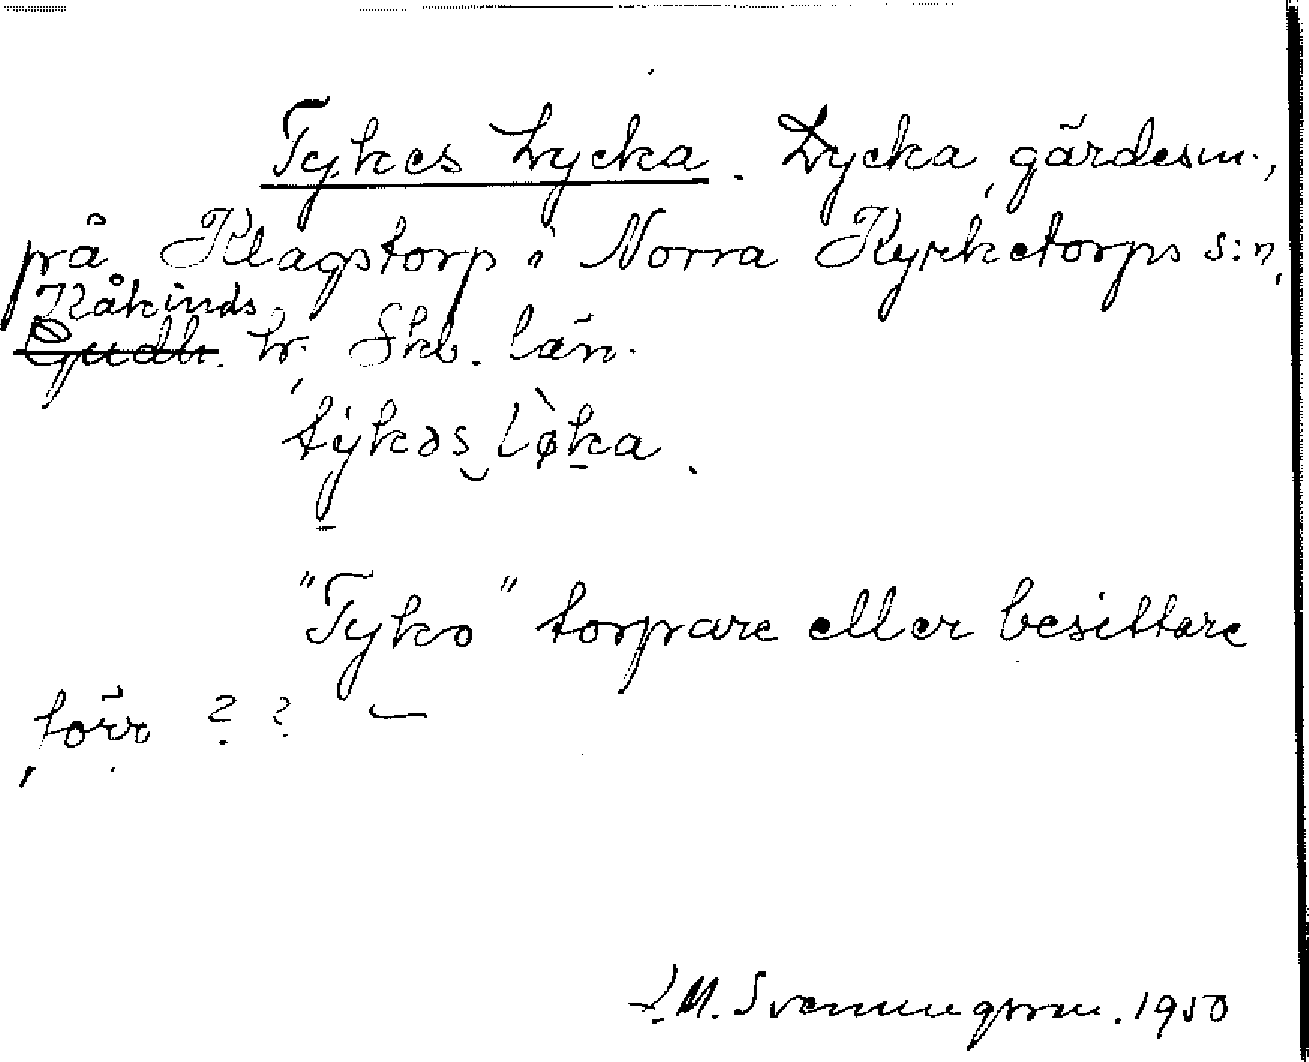 Tykes Lycka. Lycka, gärdesn.,
på Klagstorp i Norra Kyrketorps s:n,
Kåkinds
Gudh. hr. Skb. län.
týkəs lø̀ka.
"Tyko" torpare eller besittare
förr ? ? —
L.M. Svenungsson. 1950